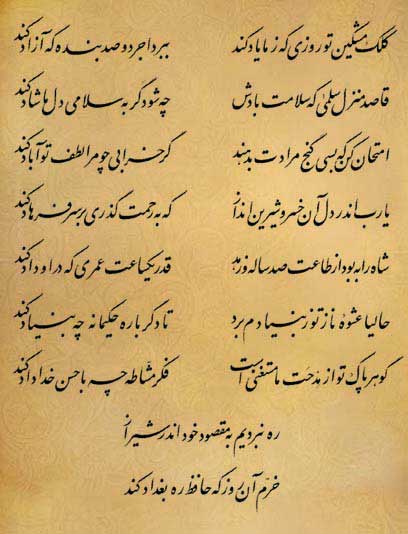 کلک مشکین تو روزی که ز ما یاد کند ببرد اجر دو صد بنده که آزاد کند
قاصد منزل سلمی که سلامت بادش چه شود گر به سلامی دل ما شاد کند
امتحان کن که بسی گنج مرادت بدهند گر خرابی چو مرا لطف تو آباد کند
یارب اندر دل آن خسرو شیرین انداز که به رحمت گذری بر سر فرهاد کند
شاه را به بود از طاعت صد ساله و زهد قدر یکساعت عمری که در او داد کند
حالیا عشوهٔ ناز تو ز بنیادم برد تا دگر باره حکیمانه چه بنیاد کند
گوهر پاک تو از مدحت ما مستغنی است فکر مشّاطه چه با حسن خداداد کند
ره نبردیم به مقصود خود اندر شیراز
خرّم آن روز که حافظ ره بغداد کند